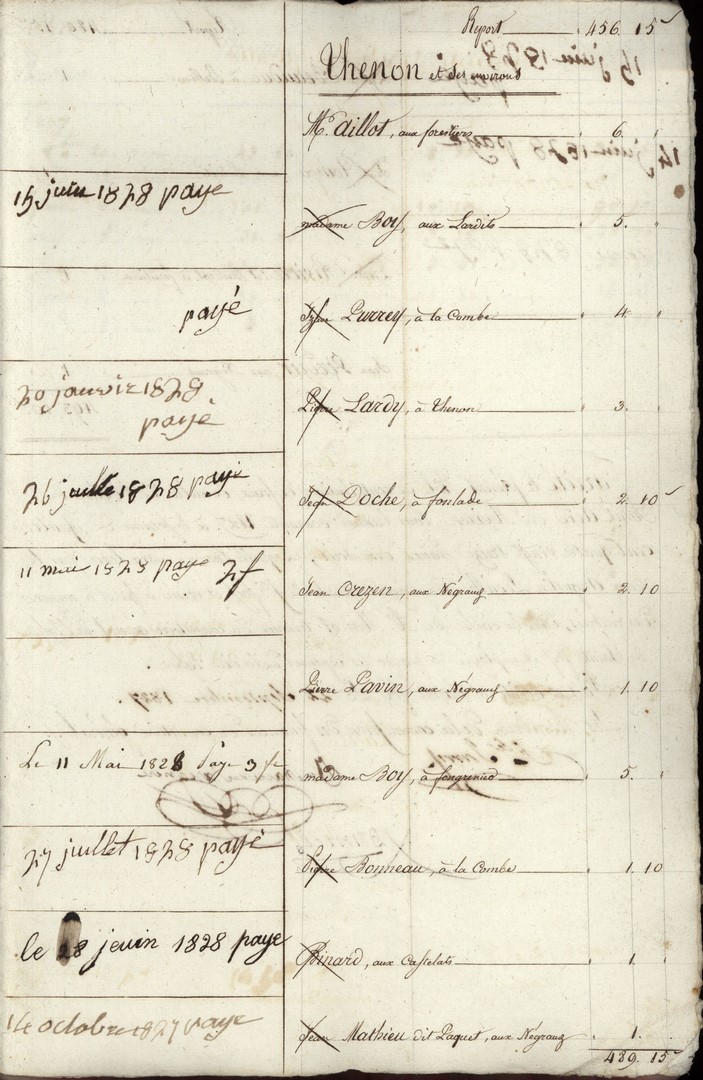 Report 456. 15
Thenon et ses environs
Mr. aillot, aux forestiers 6.
15 juin 1828 paye
madame Boy, aux Lardits 5.
payé
Purrey, à la Combe 4
20 janvir 1828
payé
Lardy, à Thenon 3.
26 juille 1828 payé
Jean Doche, à fonlade 2. 10
11 mai 1828 paye 2f
Jean Crezen, aux Négraux 2. 10
Pierre Pavin, aux Négraux 1. 10
Le 11 Mai 1828 paye 3 fr
madame Boy, à 5.
27 juillet 1828 payé
Pierre Bonneau, à la Combe 1. 10
le 28 jeuin 1828 paye
Pinard, aux Castelats 1.
14 octobre 1827 paye
Jean Mathieu dit Paquet, aux Négraux 1.
489. 15